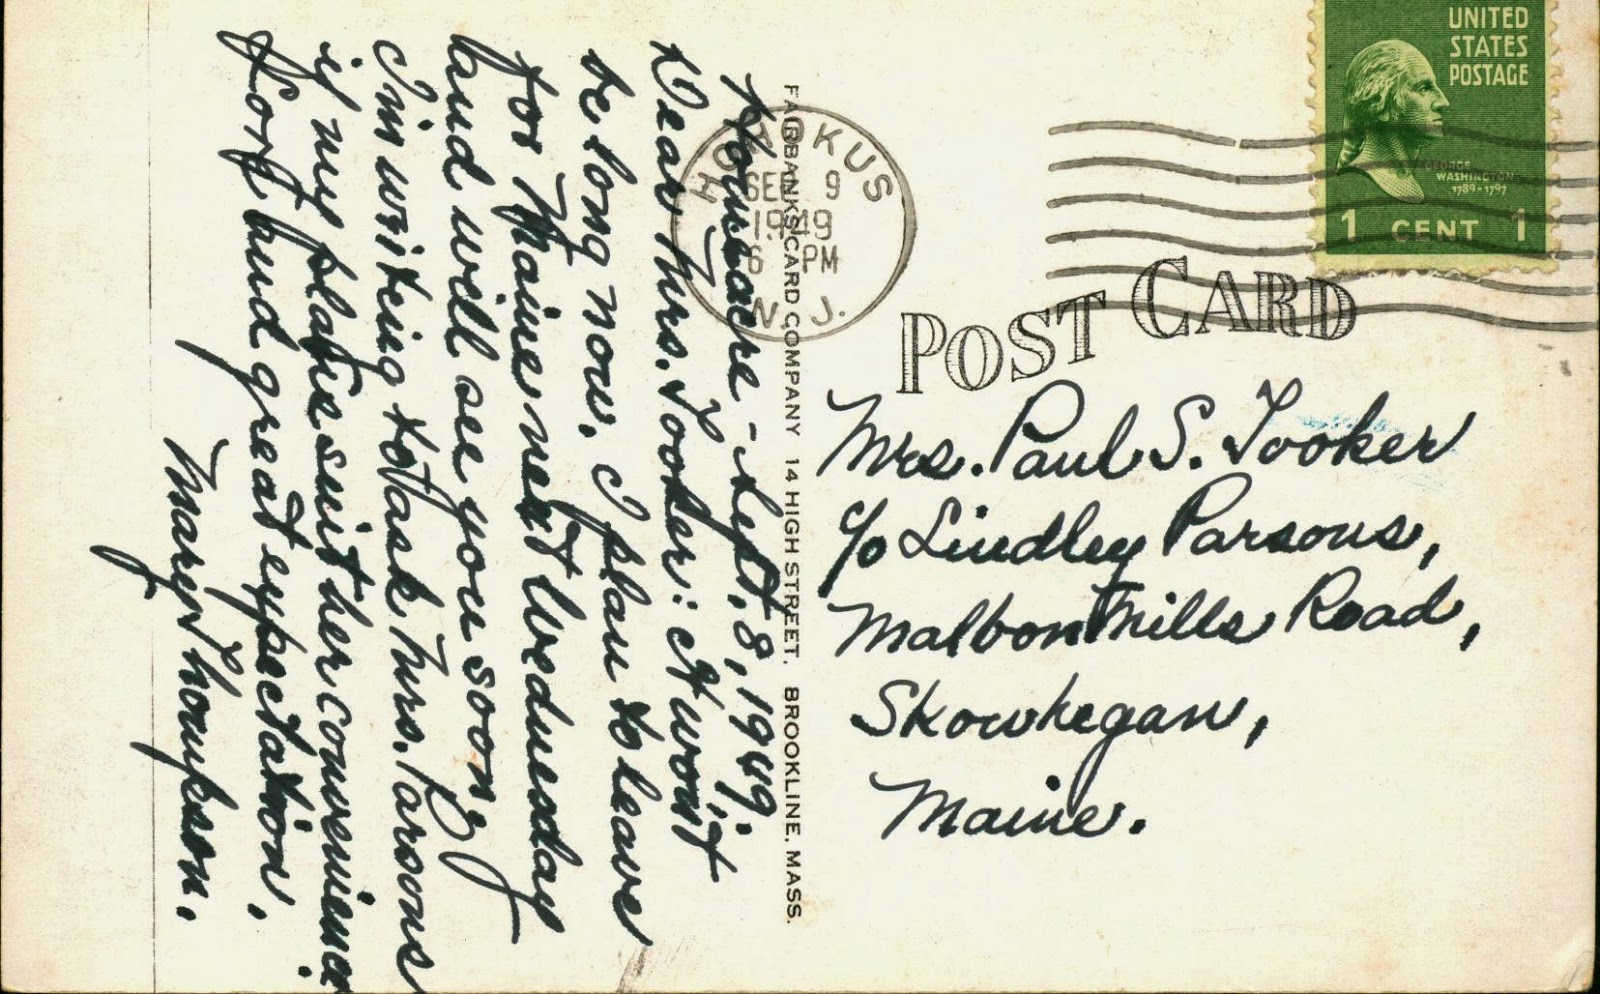 UNITED
STATES
POSTAGE
GEORGE
WASHINGTON
1789-1797
1 CENT 1
HOHOKUS
SEP 9
1949
6 PM
N. J.
POST CARD
FAIRBANKS CARD COMPANY 14 HIGH STREET. BROOKLINE, MASS.
Sept. 8, 1949.
Dear Mrs. Tooker: It won't
be long now. I plan to leave
for Maine next Wednesday
and will see you soon.
I'm writing to ask Mrs. Parsons
if my plans suit her convenience.
Love and great expectation.
Mary Thompson.
Mrs. Paul S. Tooker
c/o Lindley Parsons,
Malbon Mills Road,
Skowhegan,
Maine.